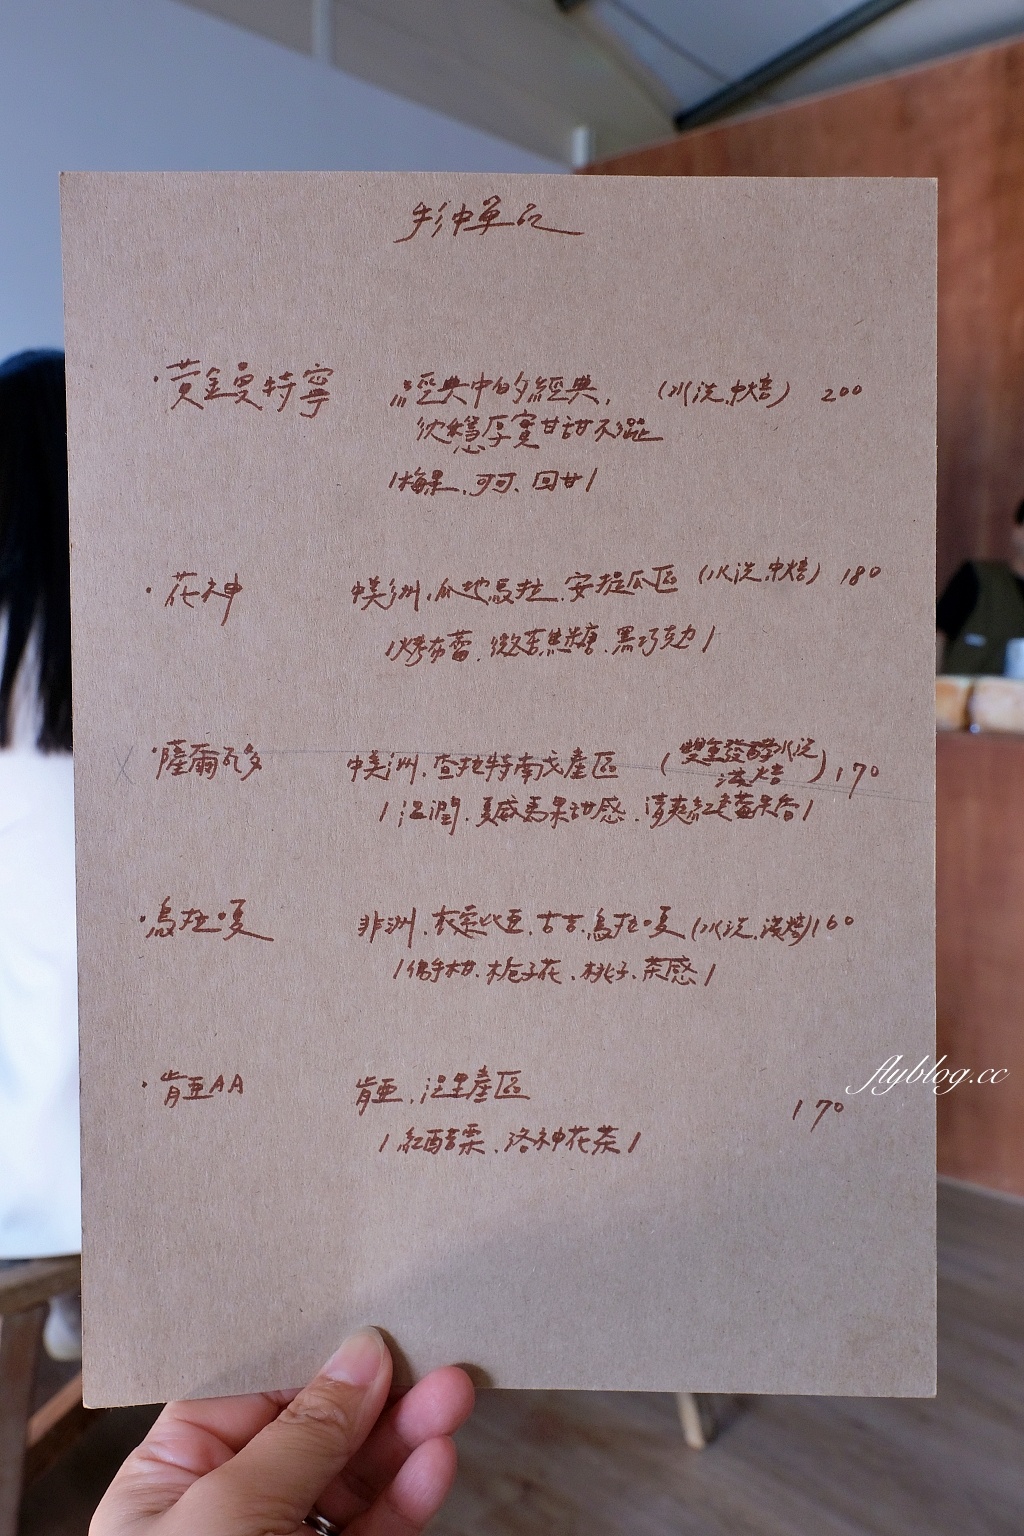 手沖單品
·黃金曼特寧 經典中的經典, (水洗.中焙) 200
沈穩厚實甘甜不澀
/梅果.可可.回甘/
·花神 中美洲.瓜地馬拉.安提瓜區 (水洗.中焙) 180
/烤布蕾.微苦焦糖.黑巧克力/
·薩爾瓦多 中美洲.查拉特南戈產區 (雙重發酵水洗 淺焙) 170
/溫潤.夏威夷果甜感.清爽紅莓果香/
·烏拉嘎 非洲.衣索比亞.古吉.烏拉嘎 (水洗.淺焙) 160
/佛手柑.梔子花.桃子.茶感/
·肯亞AA 肯亞.涅里產區
170
/紅醋栗.洛神花茶/
flyblog.cc